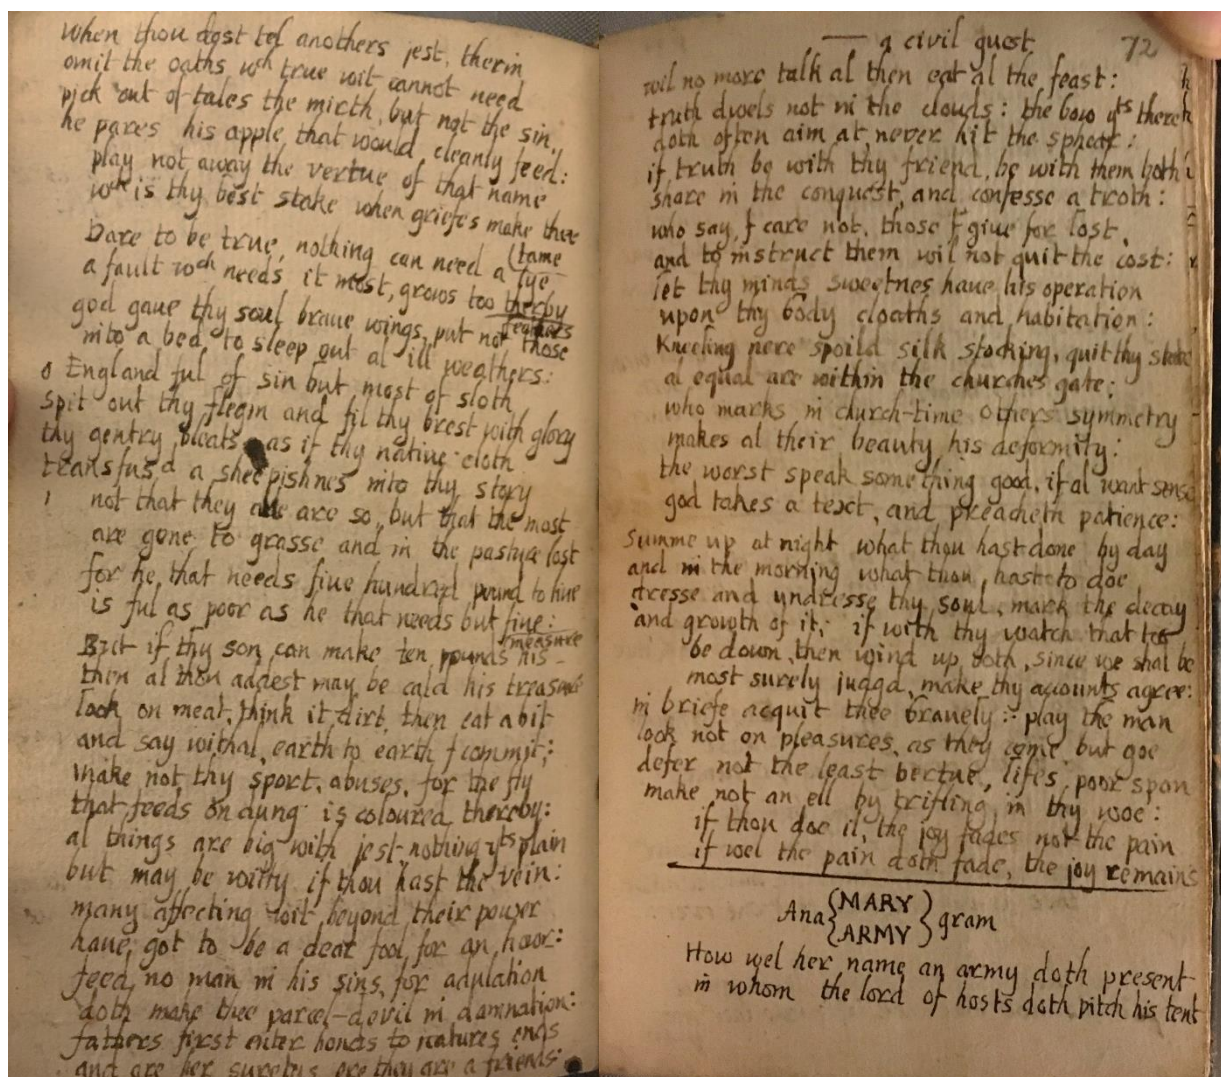 When thou dost tel anothers jest, therin
omit the oaths wch true wit cannot need
pick out of tales the mirth, but not the sin,
he pares his apple, that would cleanly feed:
play not away the vertue of that name
wch is thy best stake when griefes make thee
(tame
Dare to be true, nothing can need a lye
a fault wch needs it most, grows too therby
god gaue thy soul braue wings, put not those
feathers
into a bed, to sleep out al ill weathers:
o England ful of sin but most of sloth
Spit out thy flegm and fil thy brest with glory
thy gentry bleats as if thy native cloth
transfus'd a sheepishnes into thy story
not that they are so, but that the most
are gone to grasse and in the pasture lost
for he, that needs fiue hundred pound to liue
is ful as poor as he that needs but fiue:
But if thy son can make ten pounds his
measure
then al thou addest may be cald his treasure
look on meat, think it dirt, then eat a bit
and say withal, earth to earth I commit;
make not thy sport, abuses, for the fly
that feeds on dung is coloured thereby:
al things are big with jest, nothing yts plain
but may be witty if thou hast the vein:
many affecting wit beyond their power
haue got to be a dear fool for an hour:
feed no man in his sins, for adulation
doth make thee parcel-devil in damnation:
fathers first enter bonds to natures ends
and are her sureties ere they are a friends:
— a civil guest 72
wil no more talk al then eat al the feast:
truth dwels not in the clouds: the bow yts there
doth often aim at, never hit the sphear:
if truth be with thy friend, be with them both
share in the conquest, and confesse a troth:
who say, I care not, those I giue for lost,
and to instruct them wil not quit the cost:
let thy minds sweetnes haue his operation
upon thy body cloaths and habitation:
Kneeling nere spoild silk stocking, quit thy state
al equal are within the churches gate:
who marks in church-time others symmetry
makes al their beauty his deformity:
the worst speak something good, if al want sense
god takes a text, and preacheth patience:
Summe up at night what thou hast done by day
and in the morning what thou hast to doe
dresse and undresse thy soul, mark the decay
and growth of it; if with thy watch that too
be down, then wind up both, since we shal be
most surely judgd, make thy accounts agree:
in briefe acquit thee bravely: play the man
look not on pleasures as they come but goe
defer not the least vertue, lifes poor span
make not an ell by trifling in thy woe:
if thou doe il, the joy fades not the pain
if wel the pain doth fade, the joy remains
Ana {MARY
ARMY} gram
How wel her name an army doth present
in whom the lord of hosts doth pitch his tent